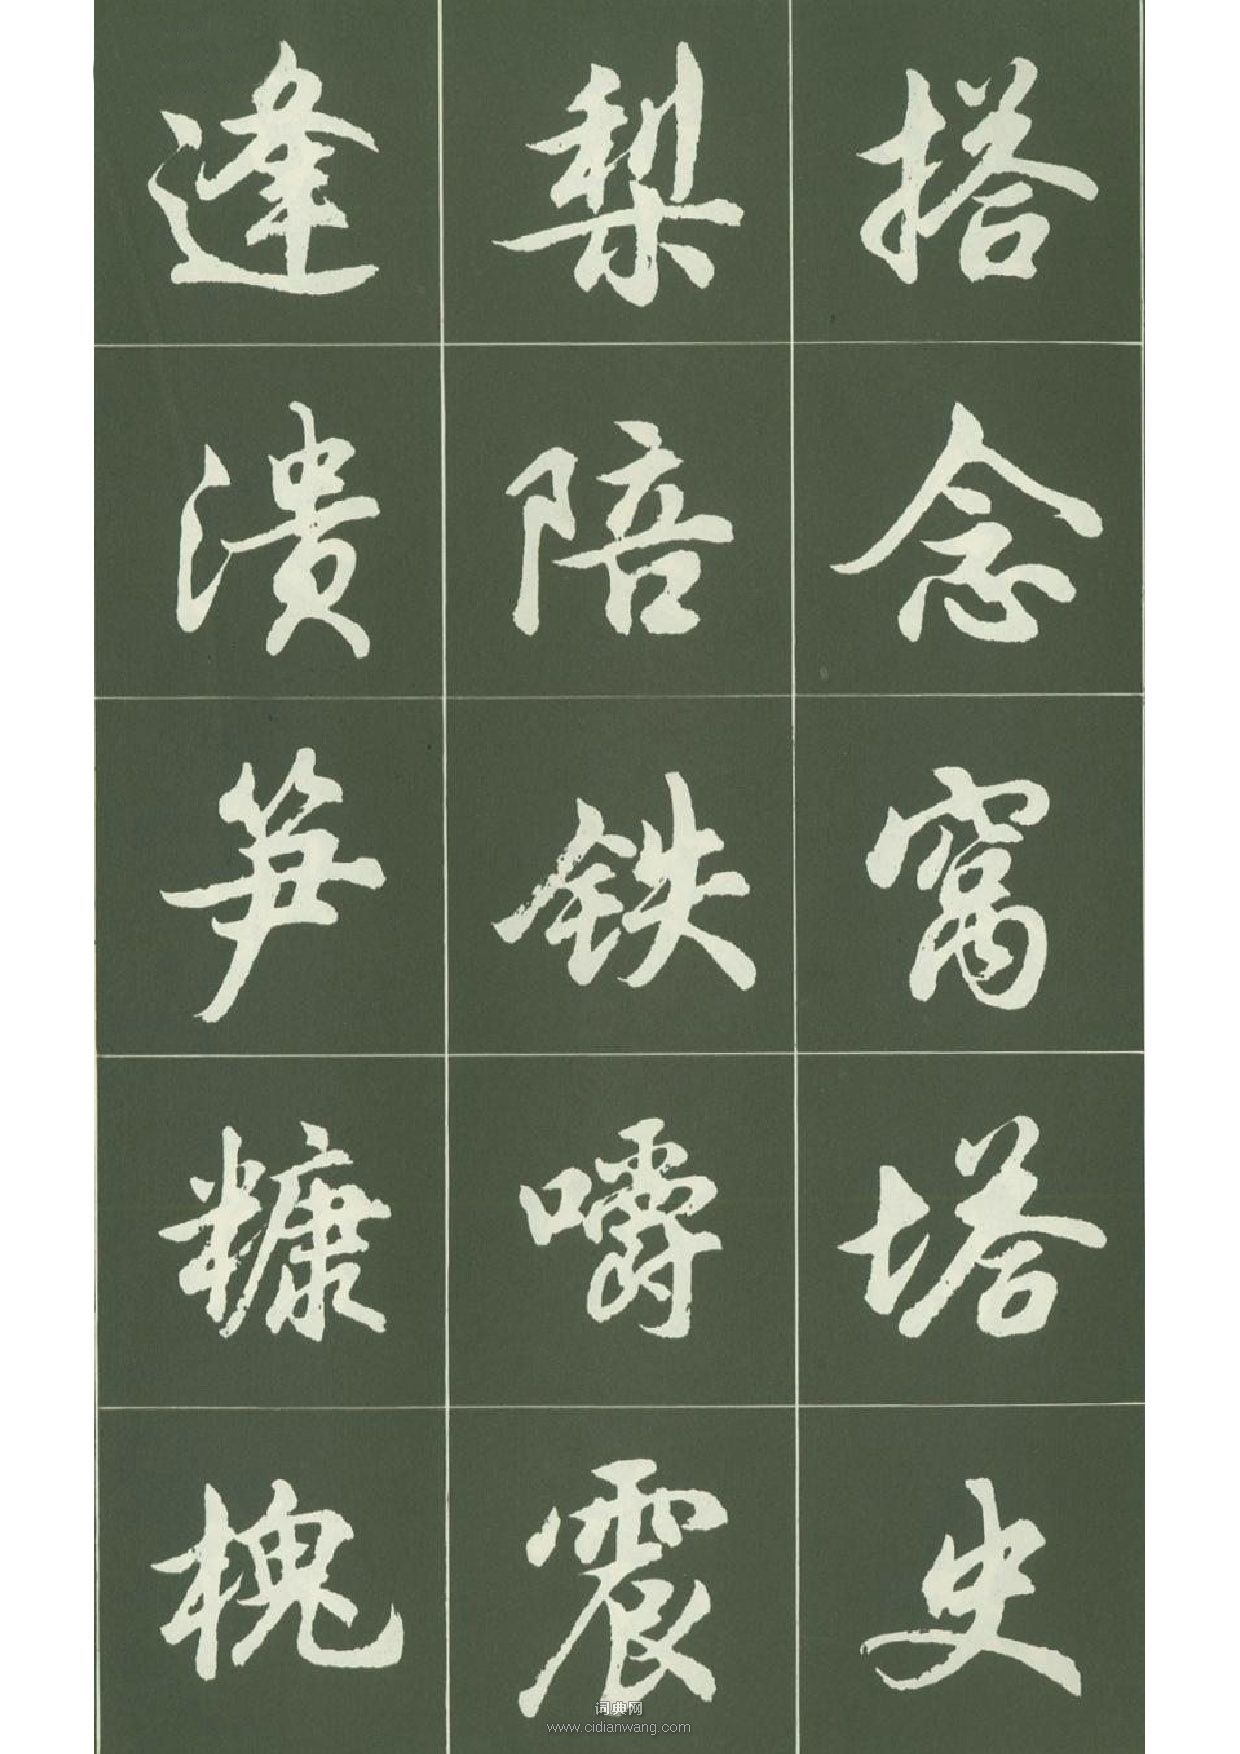 搭念窩塔史
梨陪铁嚼震
逢潰笋糠槐
词典网
www.cidianwang.com